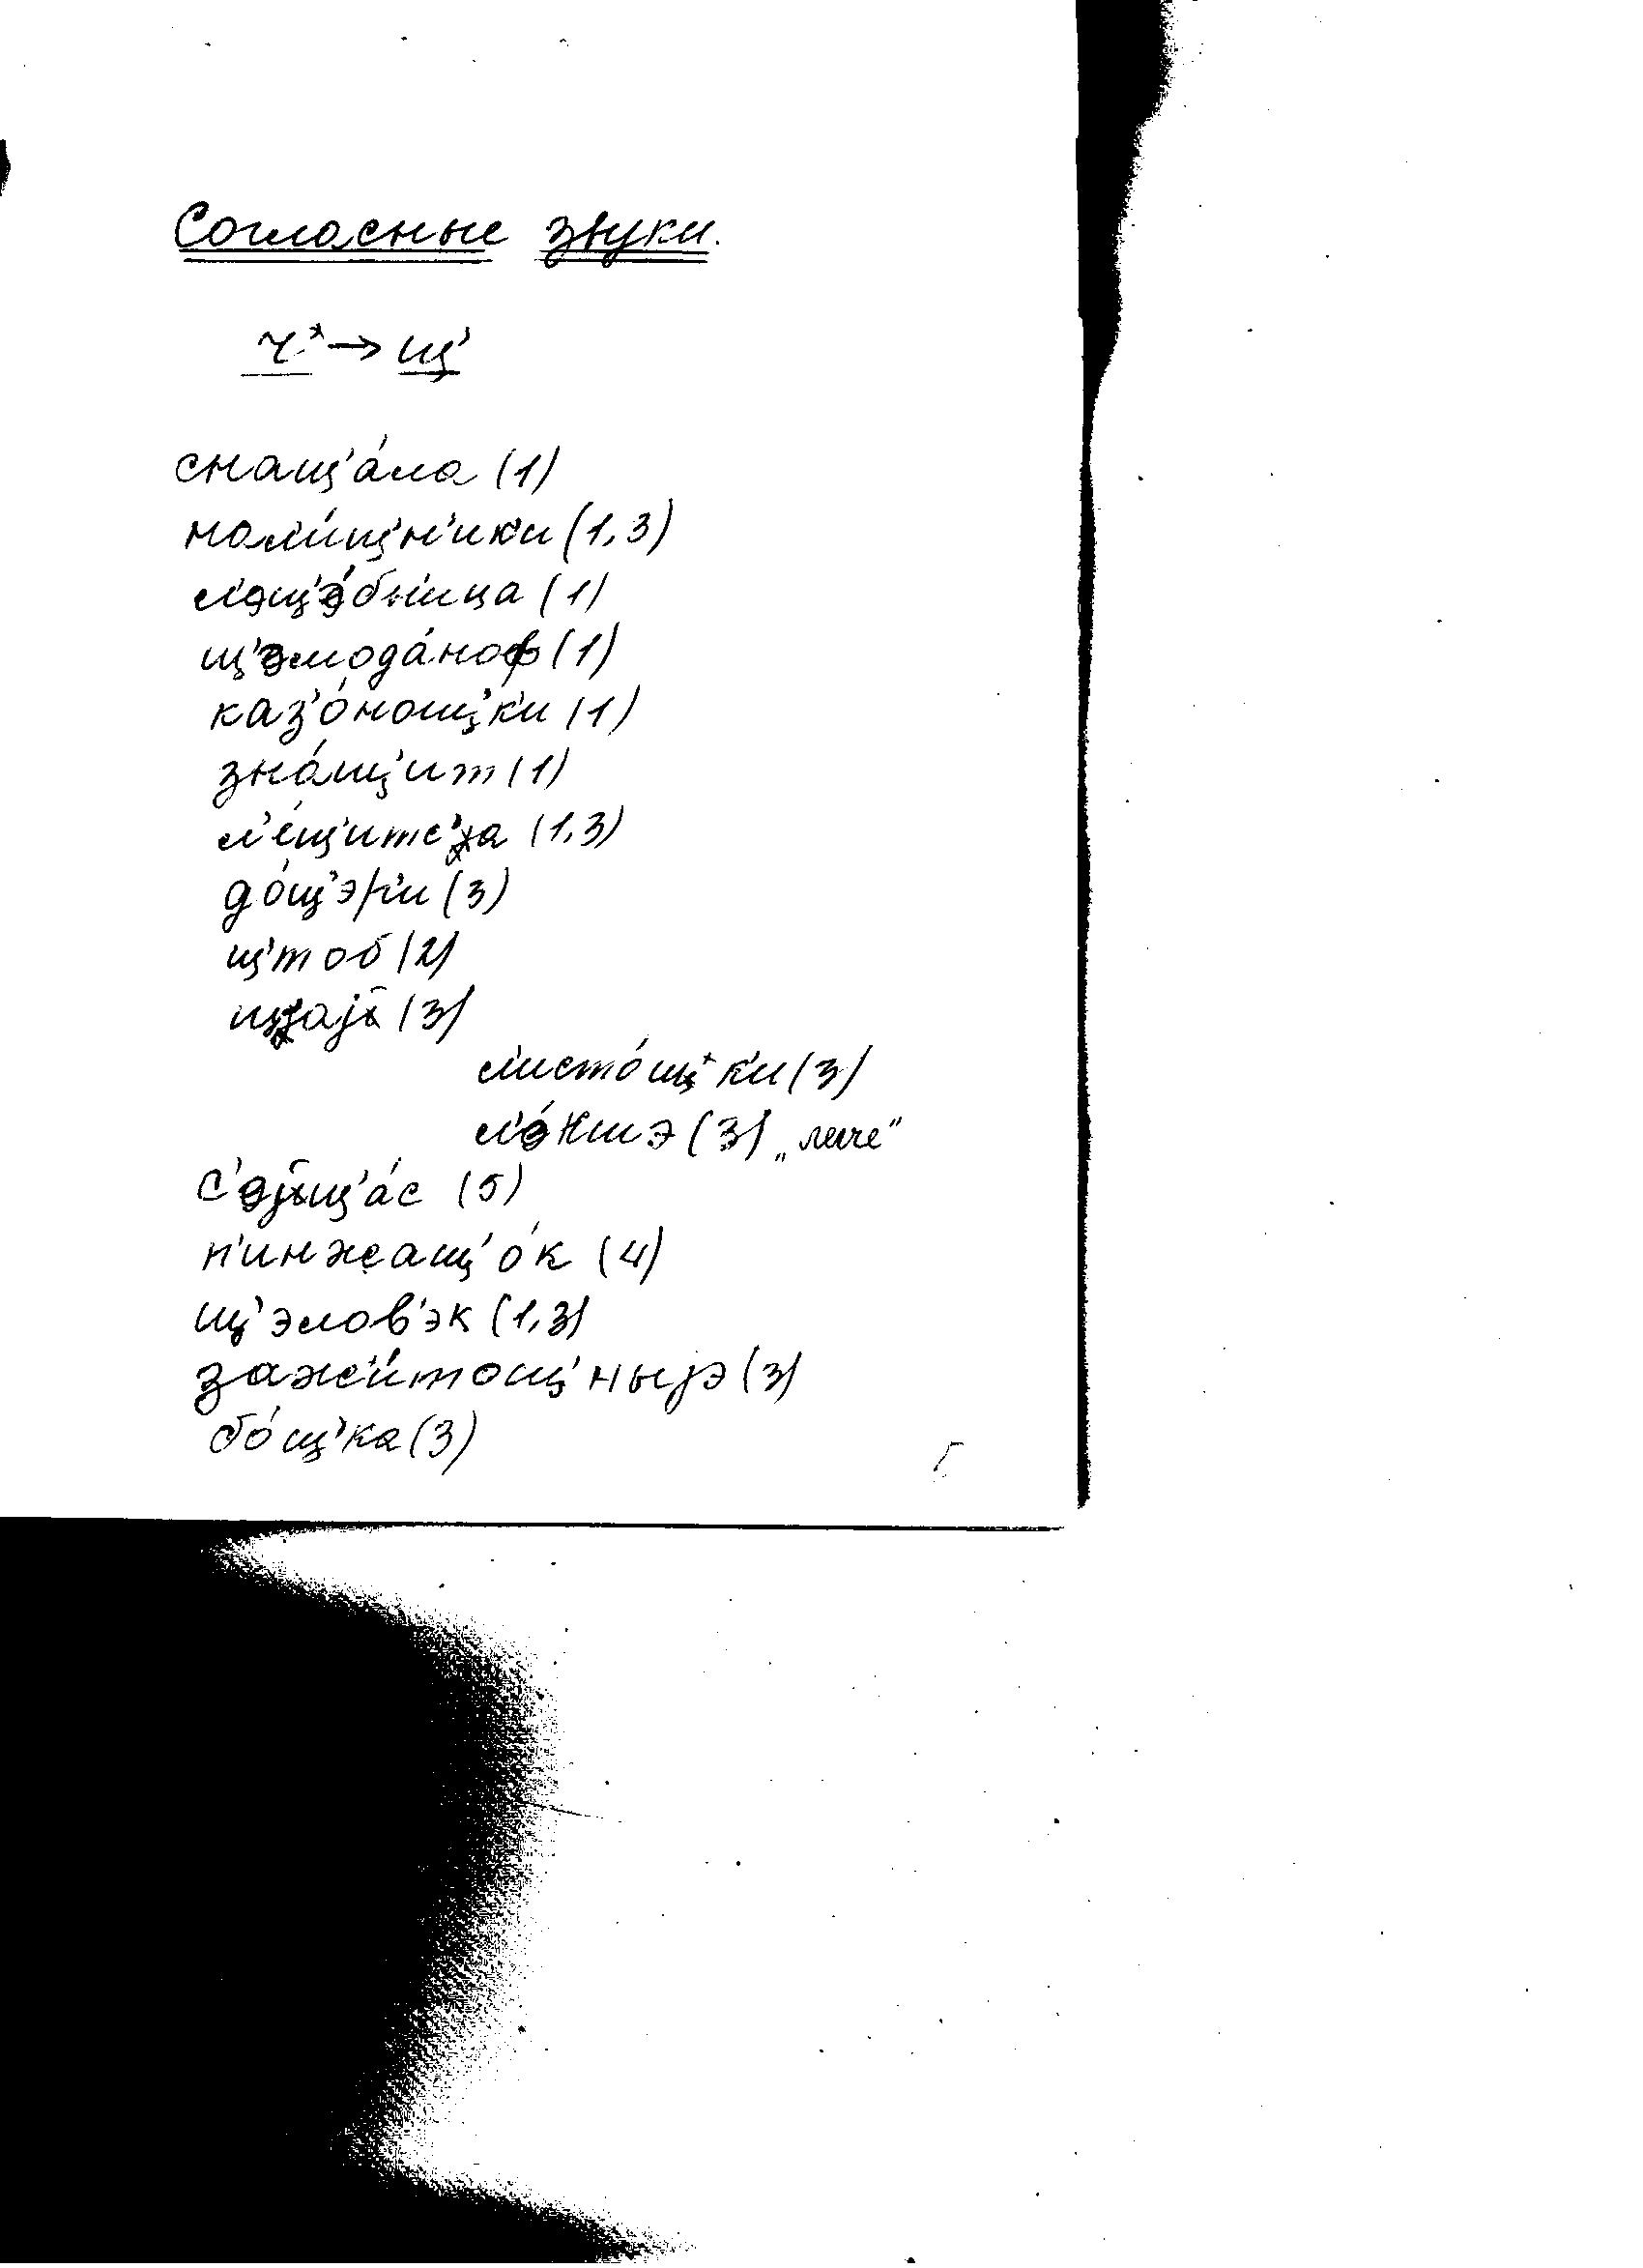 Согласные звуки.
ч' → щ'
снащ'а́ла (1)
нал'и́щ'н'ик'и (1,3)
л'эщ'э́бн'ица (1)
щ'эмода́ноф (1)
каз'о́нощ'к'и (1)
зна́щ'ит (1)
л'е́щ'итс'а (1,3)
до́щ'эр'и (3)
щ'тоб (2)
(3)
л'исто́щ'к'и (3)
(3) „легче"
щ'а́с (5)
п'инжащ'о́к (4)
щ'элов'эк (1,3)
заж'и́тощ'ныjэ (3)
бо́щ'ка (3)